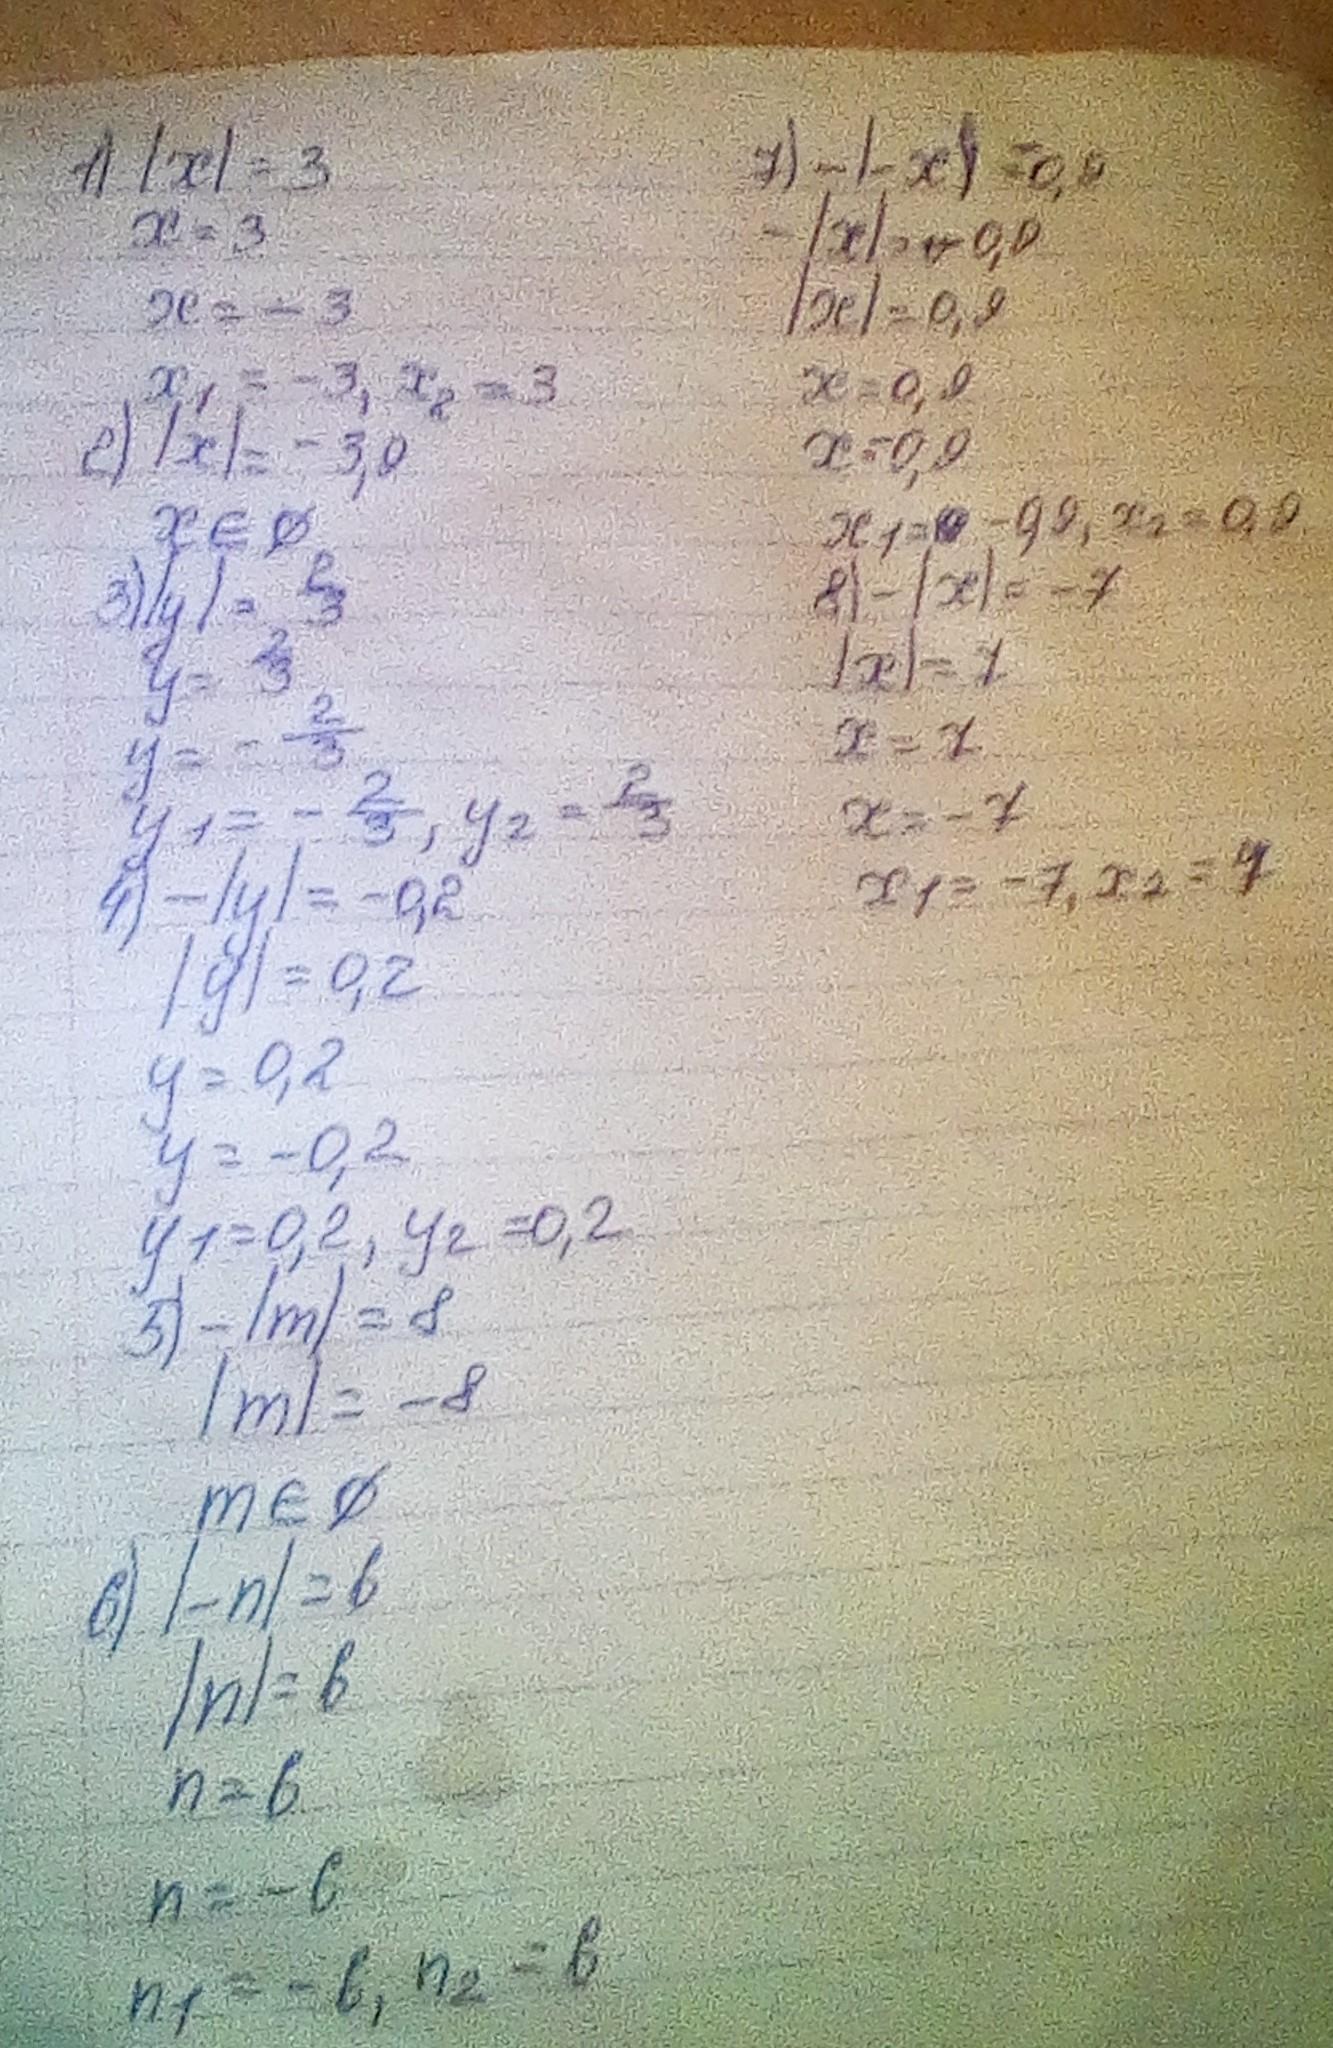 1) |x| = 3
x = 3
x = - 3
x₁ = -3, x₂ = 3
2) |x| = -3,9
x ∈ ∅
3) |y| = 2/3
y = 2/3
y = - 2/3
y₁ = - 2/3, y₂ = 2/3
4) -|y| = -0,2
|y| = 0,2
y = 0,2
y = -0,2
y₁ = 0,2, y₂ = 0,2
5) -|m| = 8
|m| = -8
m ∈ ∅
6) |-n| = 6
|n| = 6
n = 6
n = -6
n₁ = -6, n₂ = 6
7) -|-x| = -0,9
-|x| = -0,9
|x| = 0,9
x = 0,9
x = -0,9
x₁ = -0,9, x₂ = 0,9
8) -|x| = -7
|x| = 7
x = 7
x = -7
x₁ = -7, x₂ = 7